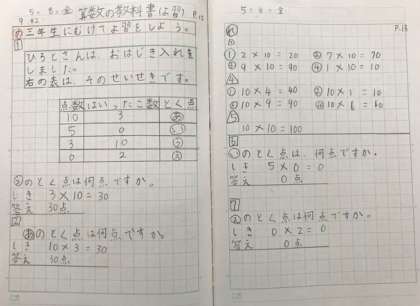 5・8・金 算数の教科書(よ習) P.12
9:02
め 三年生にむけてよ習をしよう。
1
ひろとさんは、おはじき入れを
しました。
右の表は、そのせいせきです。
点数 はいったこ数 とく点
10 3 あ
5 0 い
3 10 う
0 2 え
うのとく点は何点ですか。
しき 3×10=30
答え 30点
2
あのとく点は何点ですか。
しき 10×3=30
答え 30点
5・8・金 P.13
れ
① 2×10=20 ② 7×10=70
③ 9×10=90 ④ 1×10=10
4
① 10×4=40 ② 10×1=10
③ 10×9=90 ④ 10×6=60
5
10×10=100
6
いのとく点は、何点ですか。
しき 5×0=0
答え 0点
7
えのとく点は何点ですか。
しき 0×2=0
答え 0点